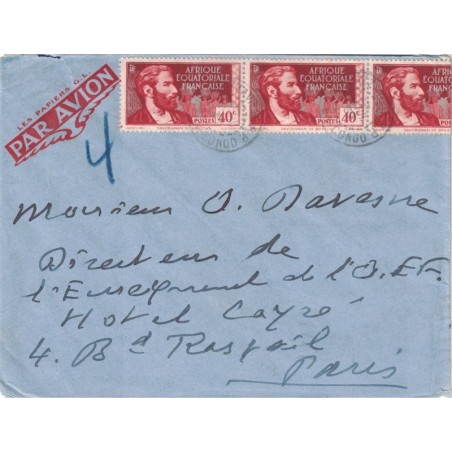 AFRIQUE
EQUATORIALE
FRANÇAISE
RF
POSTES 40c
AFRIQUE
EQUATORIALE
FRANÇAISE
RF
POSTES 40c
AFRIQUE
EQUATORIALE
FRANÇAISE
RF
POSTES
LES PAPIERS G.L.
PAR AVION
4
Monsieur A. Davesne
Directeur de
l'Enseignement de l'A.E.F.
Hotel Cayré
4. Bd Raspail
Paris